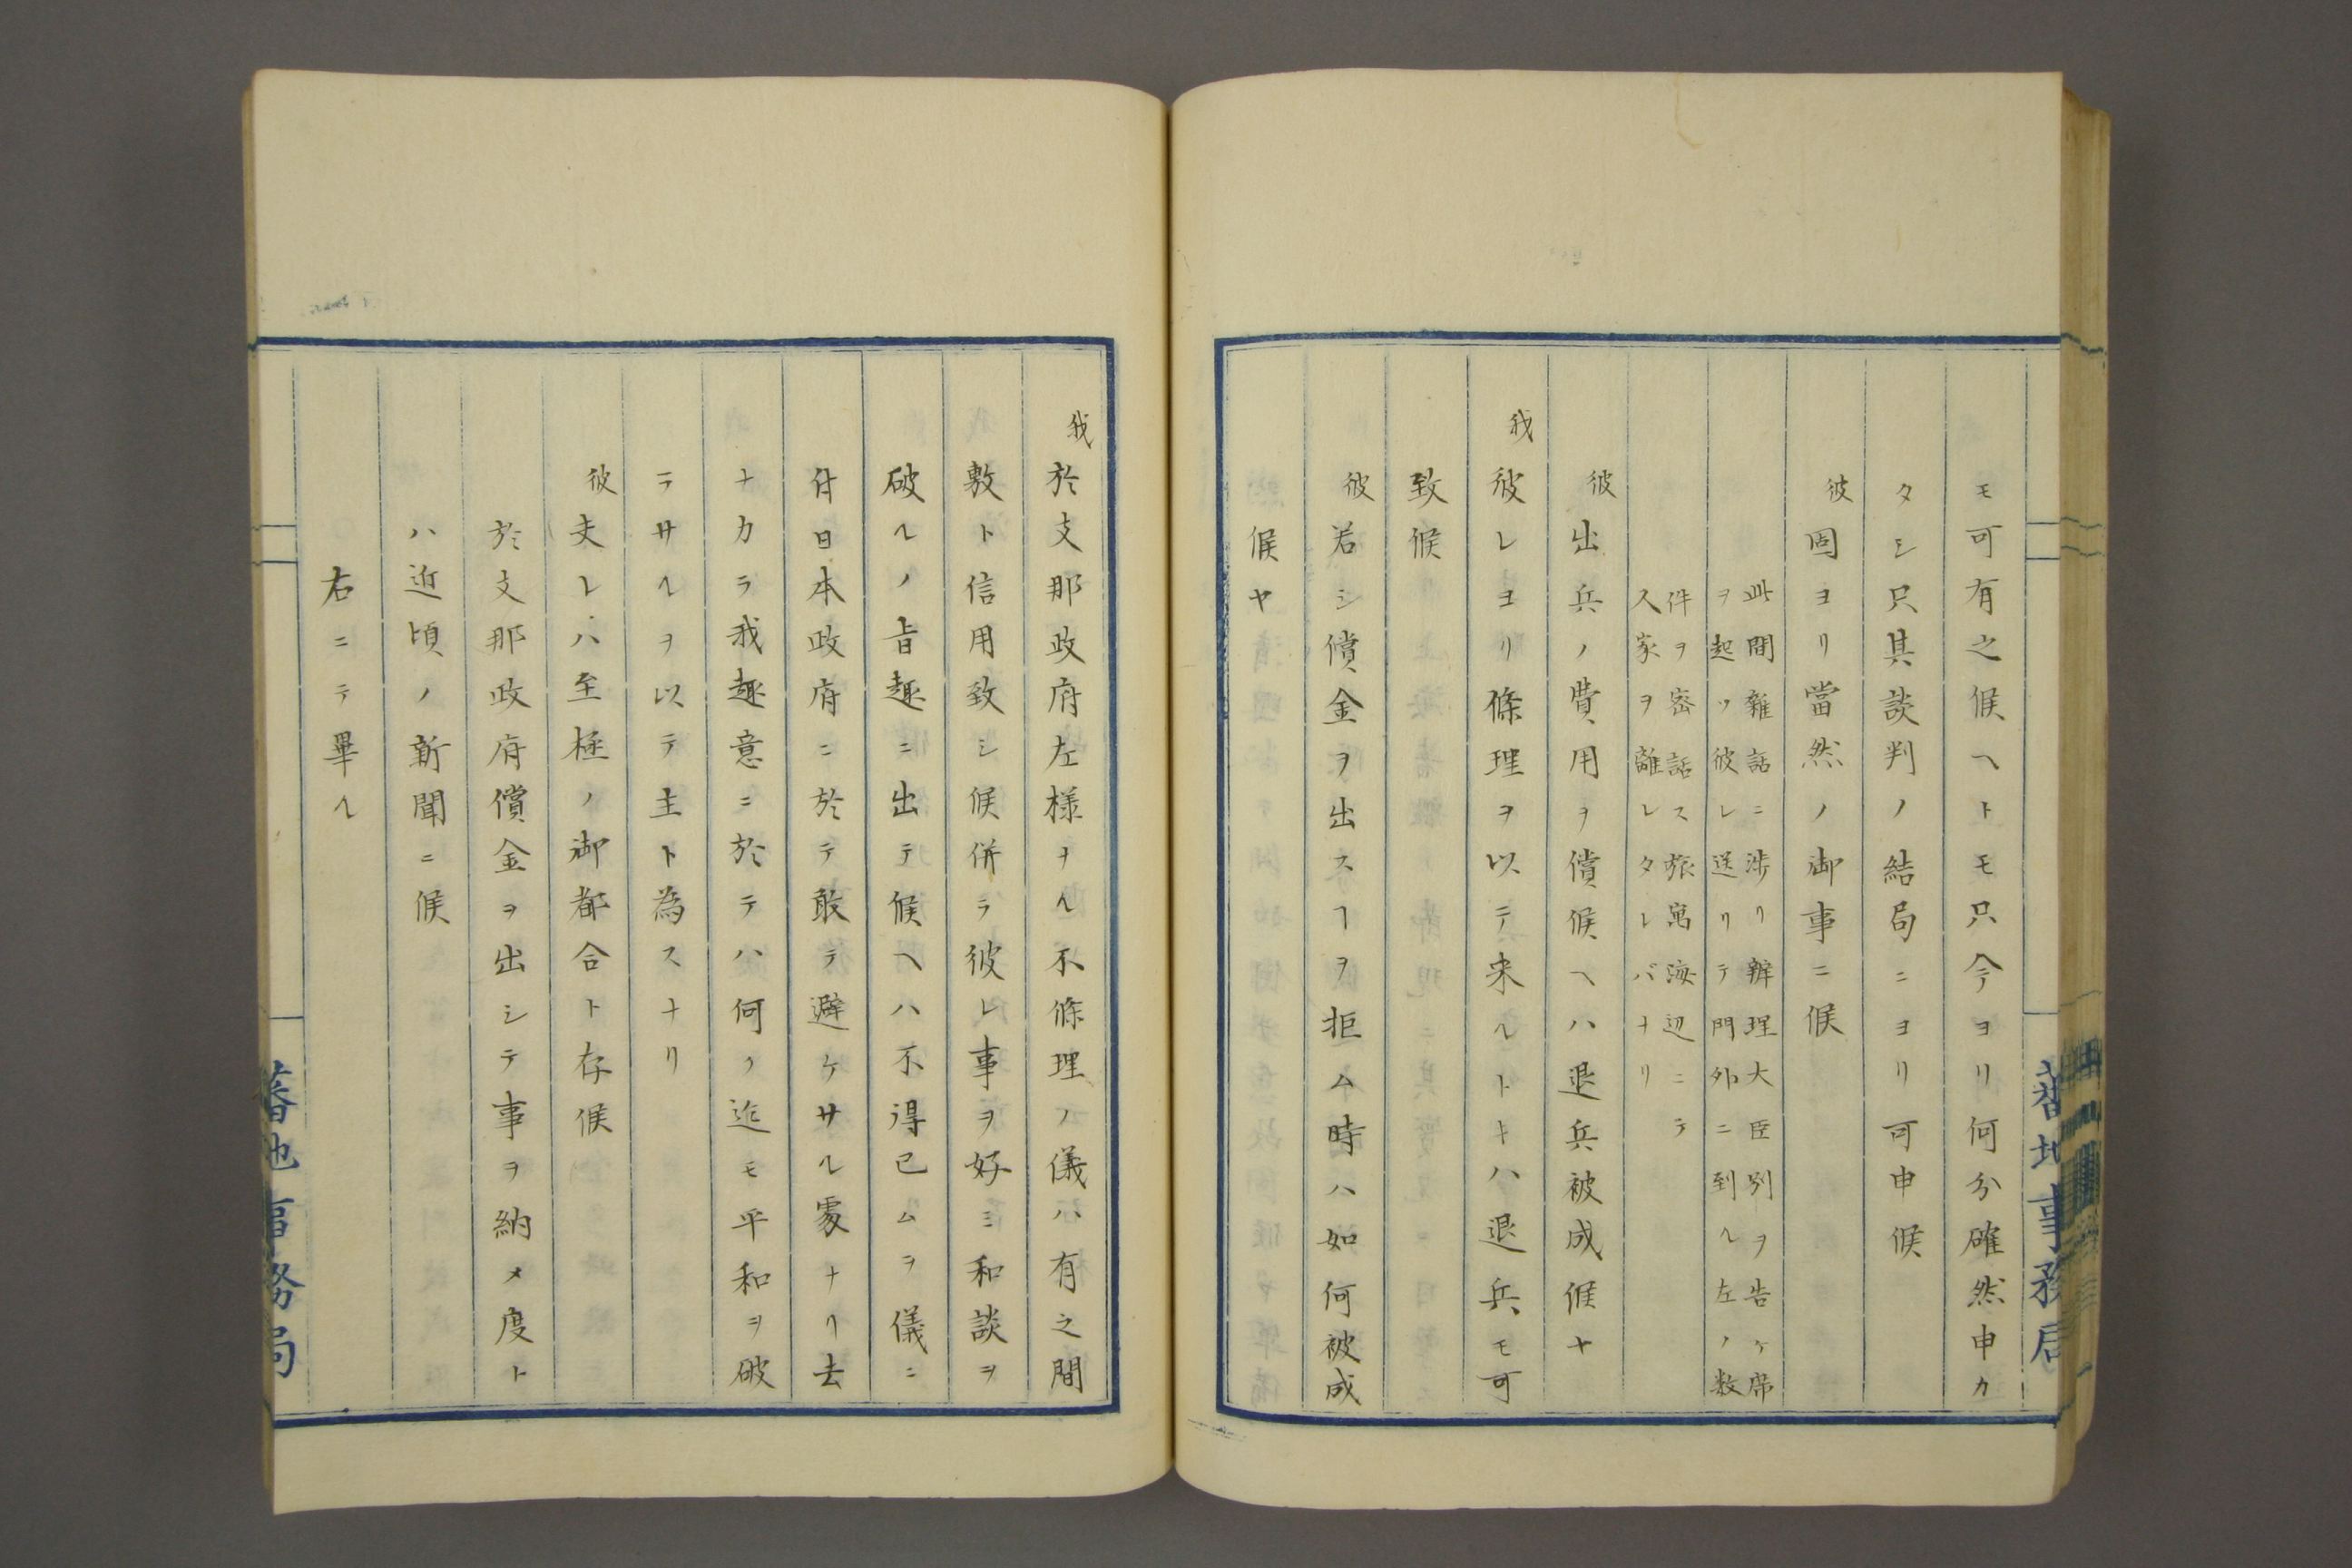 モ可有之候ヘトモ只今ヨリ何分確然申カ
タシ只其談判ノ結局ニヨリ可申候
彼固ヨリ當然ノ御事ニ候
此間雜話ニ渉リ辨理大臣別ヲ告ケ席
ヲ起ツ彼レ送リテ門外ニ到ル左ノ数
件ヲ密話ス旅寓海辺ニテ
人家ヲ離レタレバナリ
彼出兵ノ費用ヲ償候ヘハ退兵被成候ヤ
我彼レヨリ條理ヲ以テ来ルトキハ退兵モ可
致候
彼若シ償金ヲ出スヿヲ拒ム時ハ如何被成
候ヤ
蕃地事務局
我於支那政府左様ナル不條理ノ儀ハ有之間
敷ト信用致シ候併ラ彼レ事ヲ好ミ和談ヲ
破ルノ旨趣ニ出テ候ヘハ不得已ムヲ儀ニ
付日本政府ニ於テ敢テ避ケサル處ナリ去
ナカラ我趣意ニ於テハ何ノ迠モ平和ヲ破
ラサルヲ以テ主ト為スナリ
彼夫レハ至極ノ御都合ト存候
於支那政府償金ヲ出シテ事ヲ納メ度ト
ハ近頃ノ新聞ニ候
右ニテ畢ル
蕃地事務局